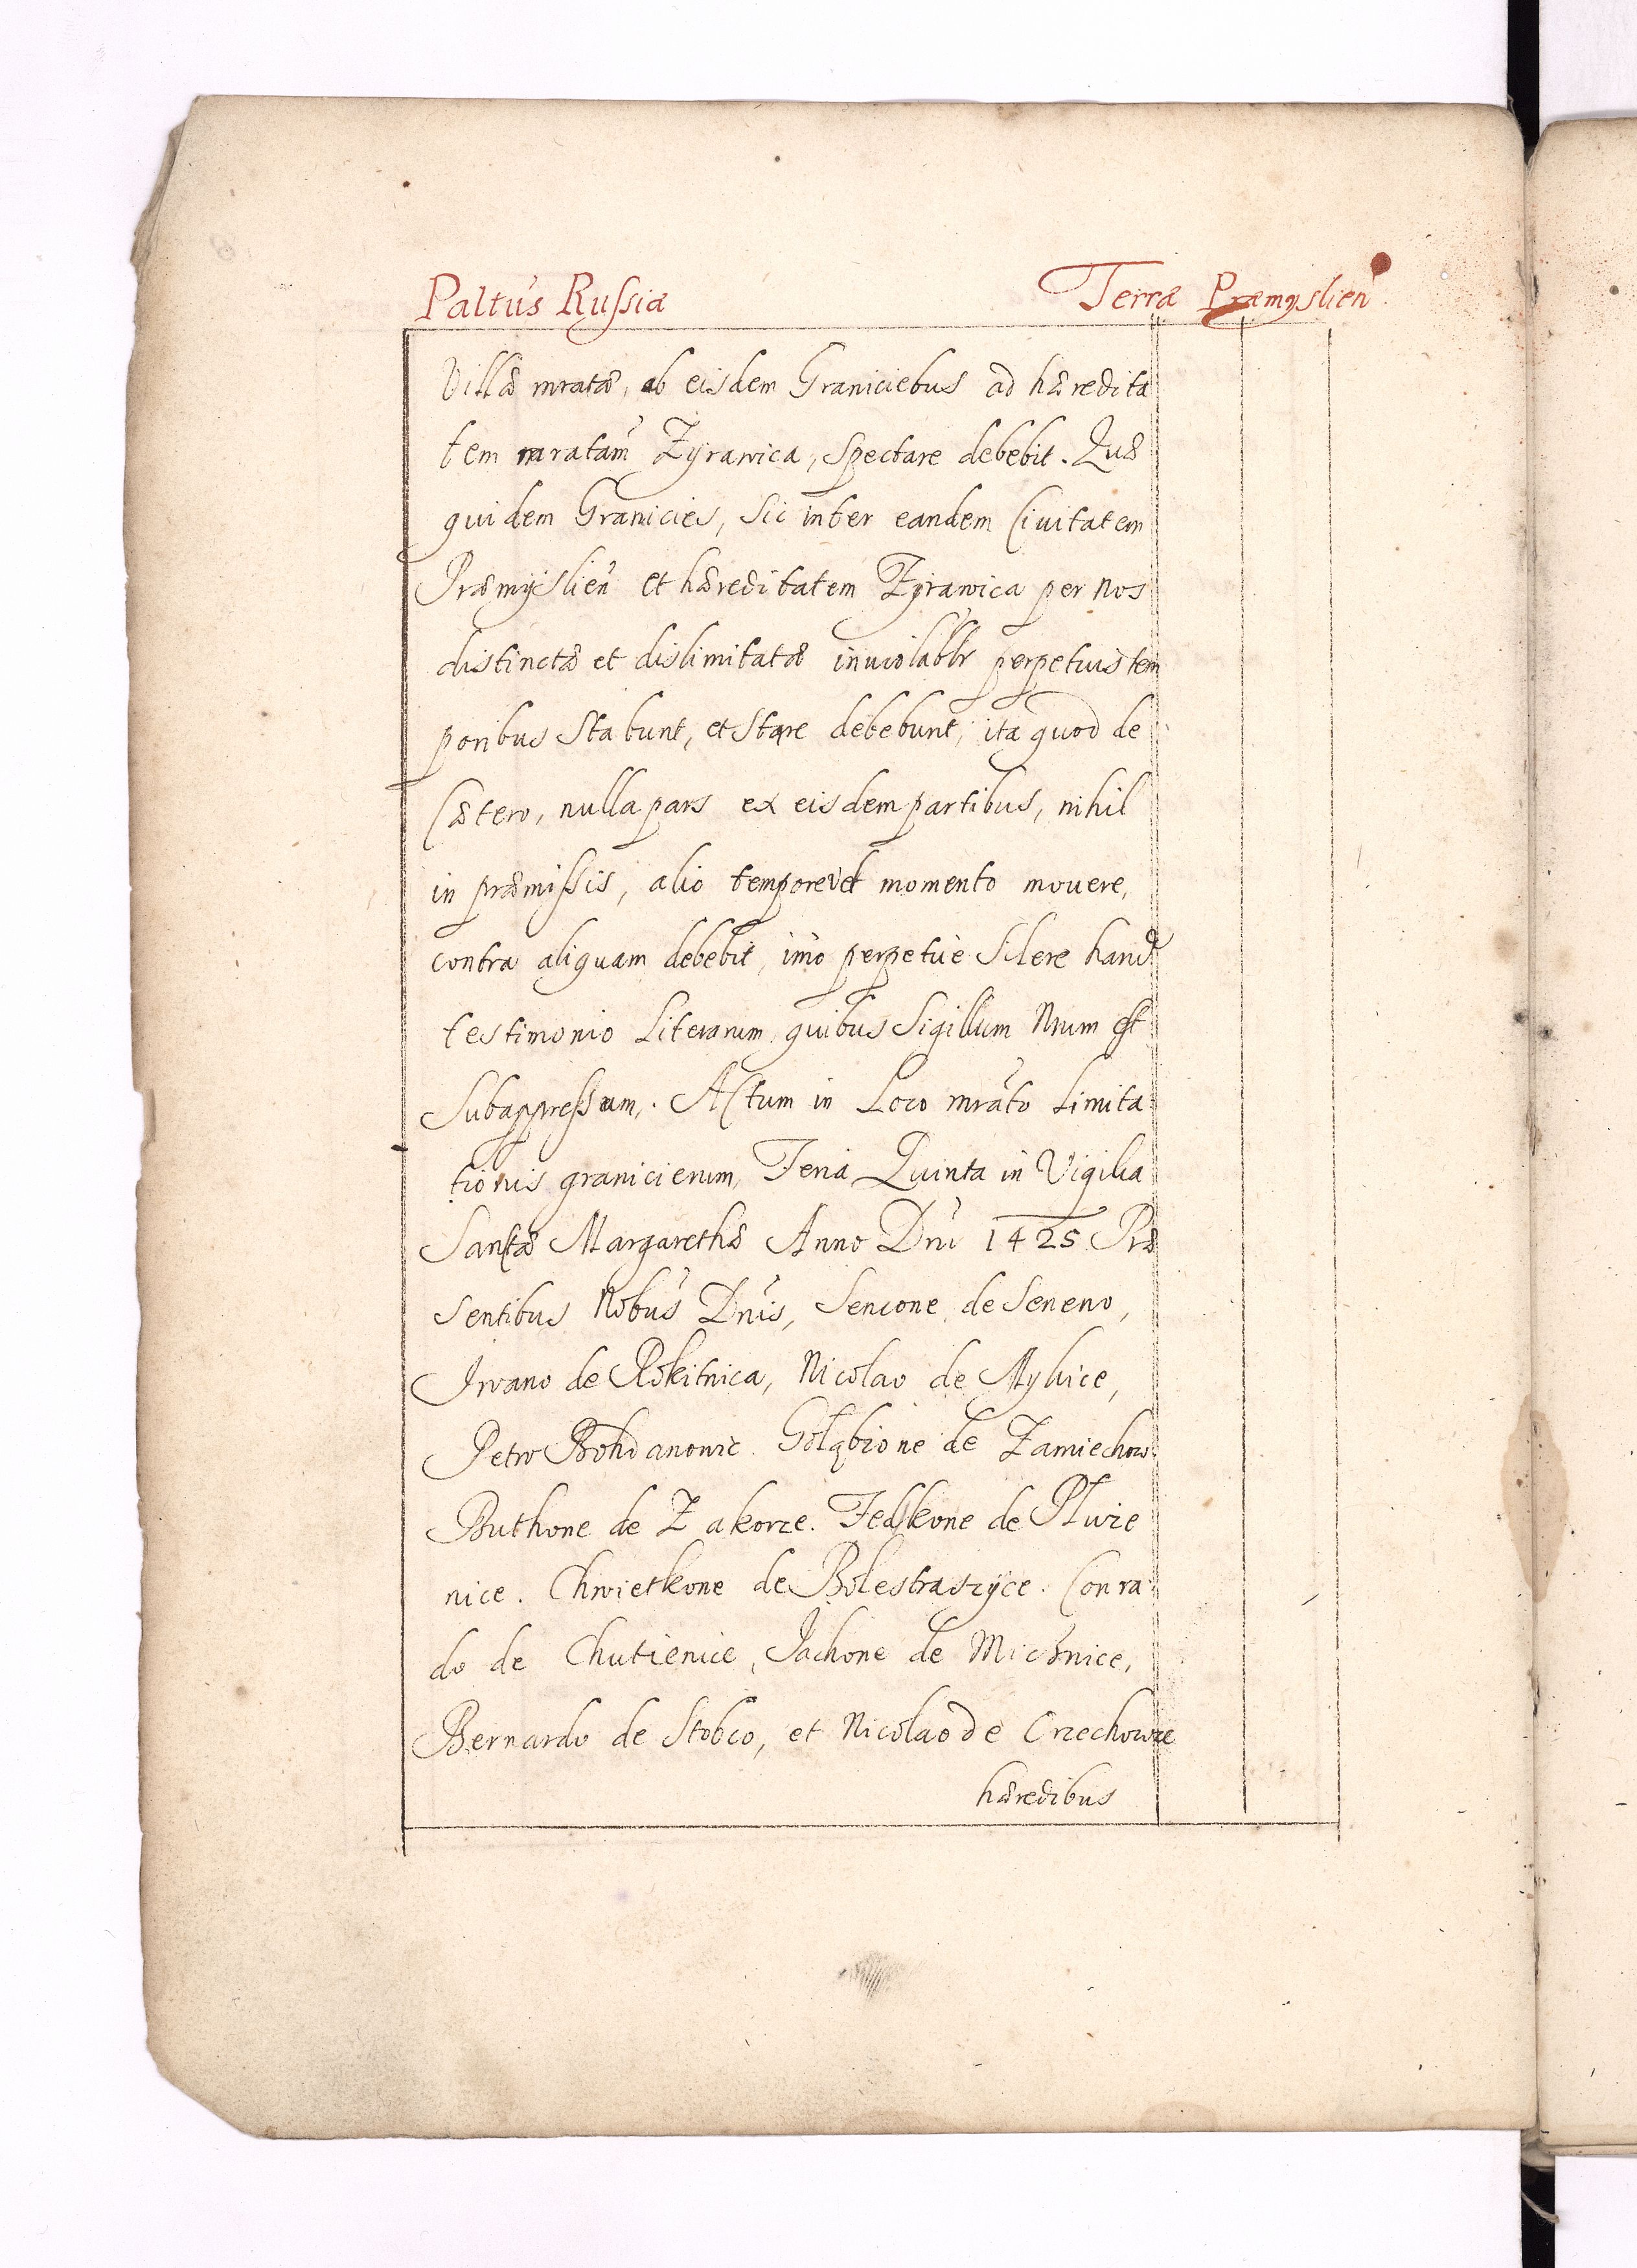 Paltus Russiæ Terræ Præmyslien
Villæ mratæ, ab eisdem Graniciebus ad hæredita
tem mratam Zyrawica, spectare debebit. Quæ
quidem Granicies, sic inter eandem Civitatem
Præmyslien et hæreditatem Zyrawica per nos
distinctæ et dislimitatæ inviolabblr perpetuis tem
poribus stabunt, et stare debebunt, ita quod de
Cætero, nulla pars ex eisdem partibus, nihil
in præmissis, alio tempore vel momento movere,
contra aliquam debebit, imo perpetuè silere
testimonio Literarum quibus Sigillum Nrum est
Subappressum. Actum in Loco mrato Limita
tionis granicierum, Feria Quinta in Vigilia
Sanctæ Margarethæ Anno Dni 1425 Præ
sentibus Nobus Dnis, Sencone de Seneno,
Iwano de Rokitnica, Nicolao de Mylvice,
Petro Bohdanowic. Gołąbione de Zamiechow
Buthone de Zakorze. Fedkone de Płwie
nice. Chwietkone de Bolestraszyce. Conra
do de Chutienice, Jachone de Micænice,
Bernardo de Stobco, et Nicolao de Orzechowce
hæredibus